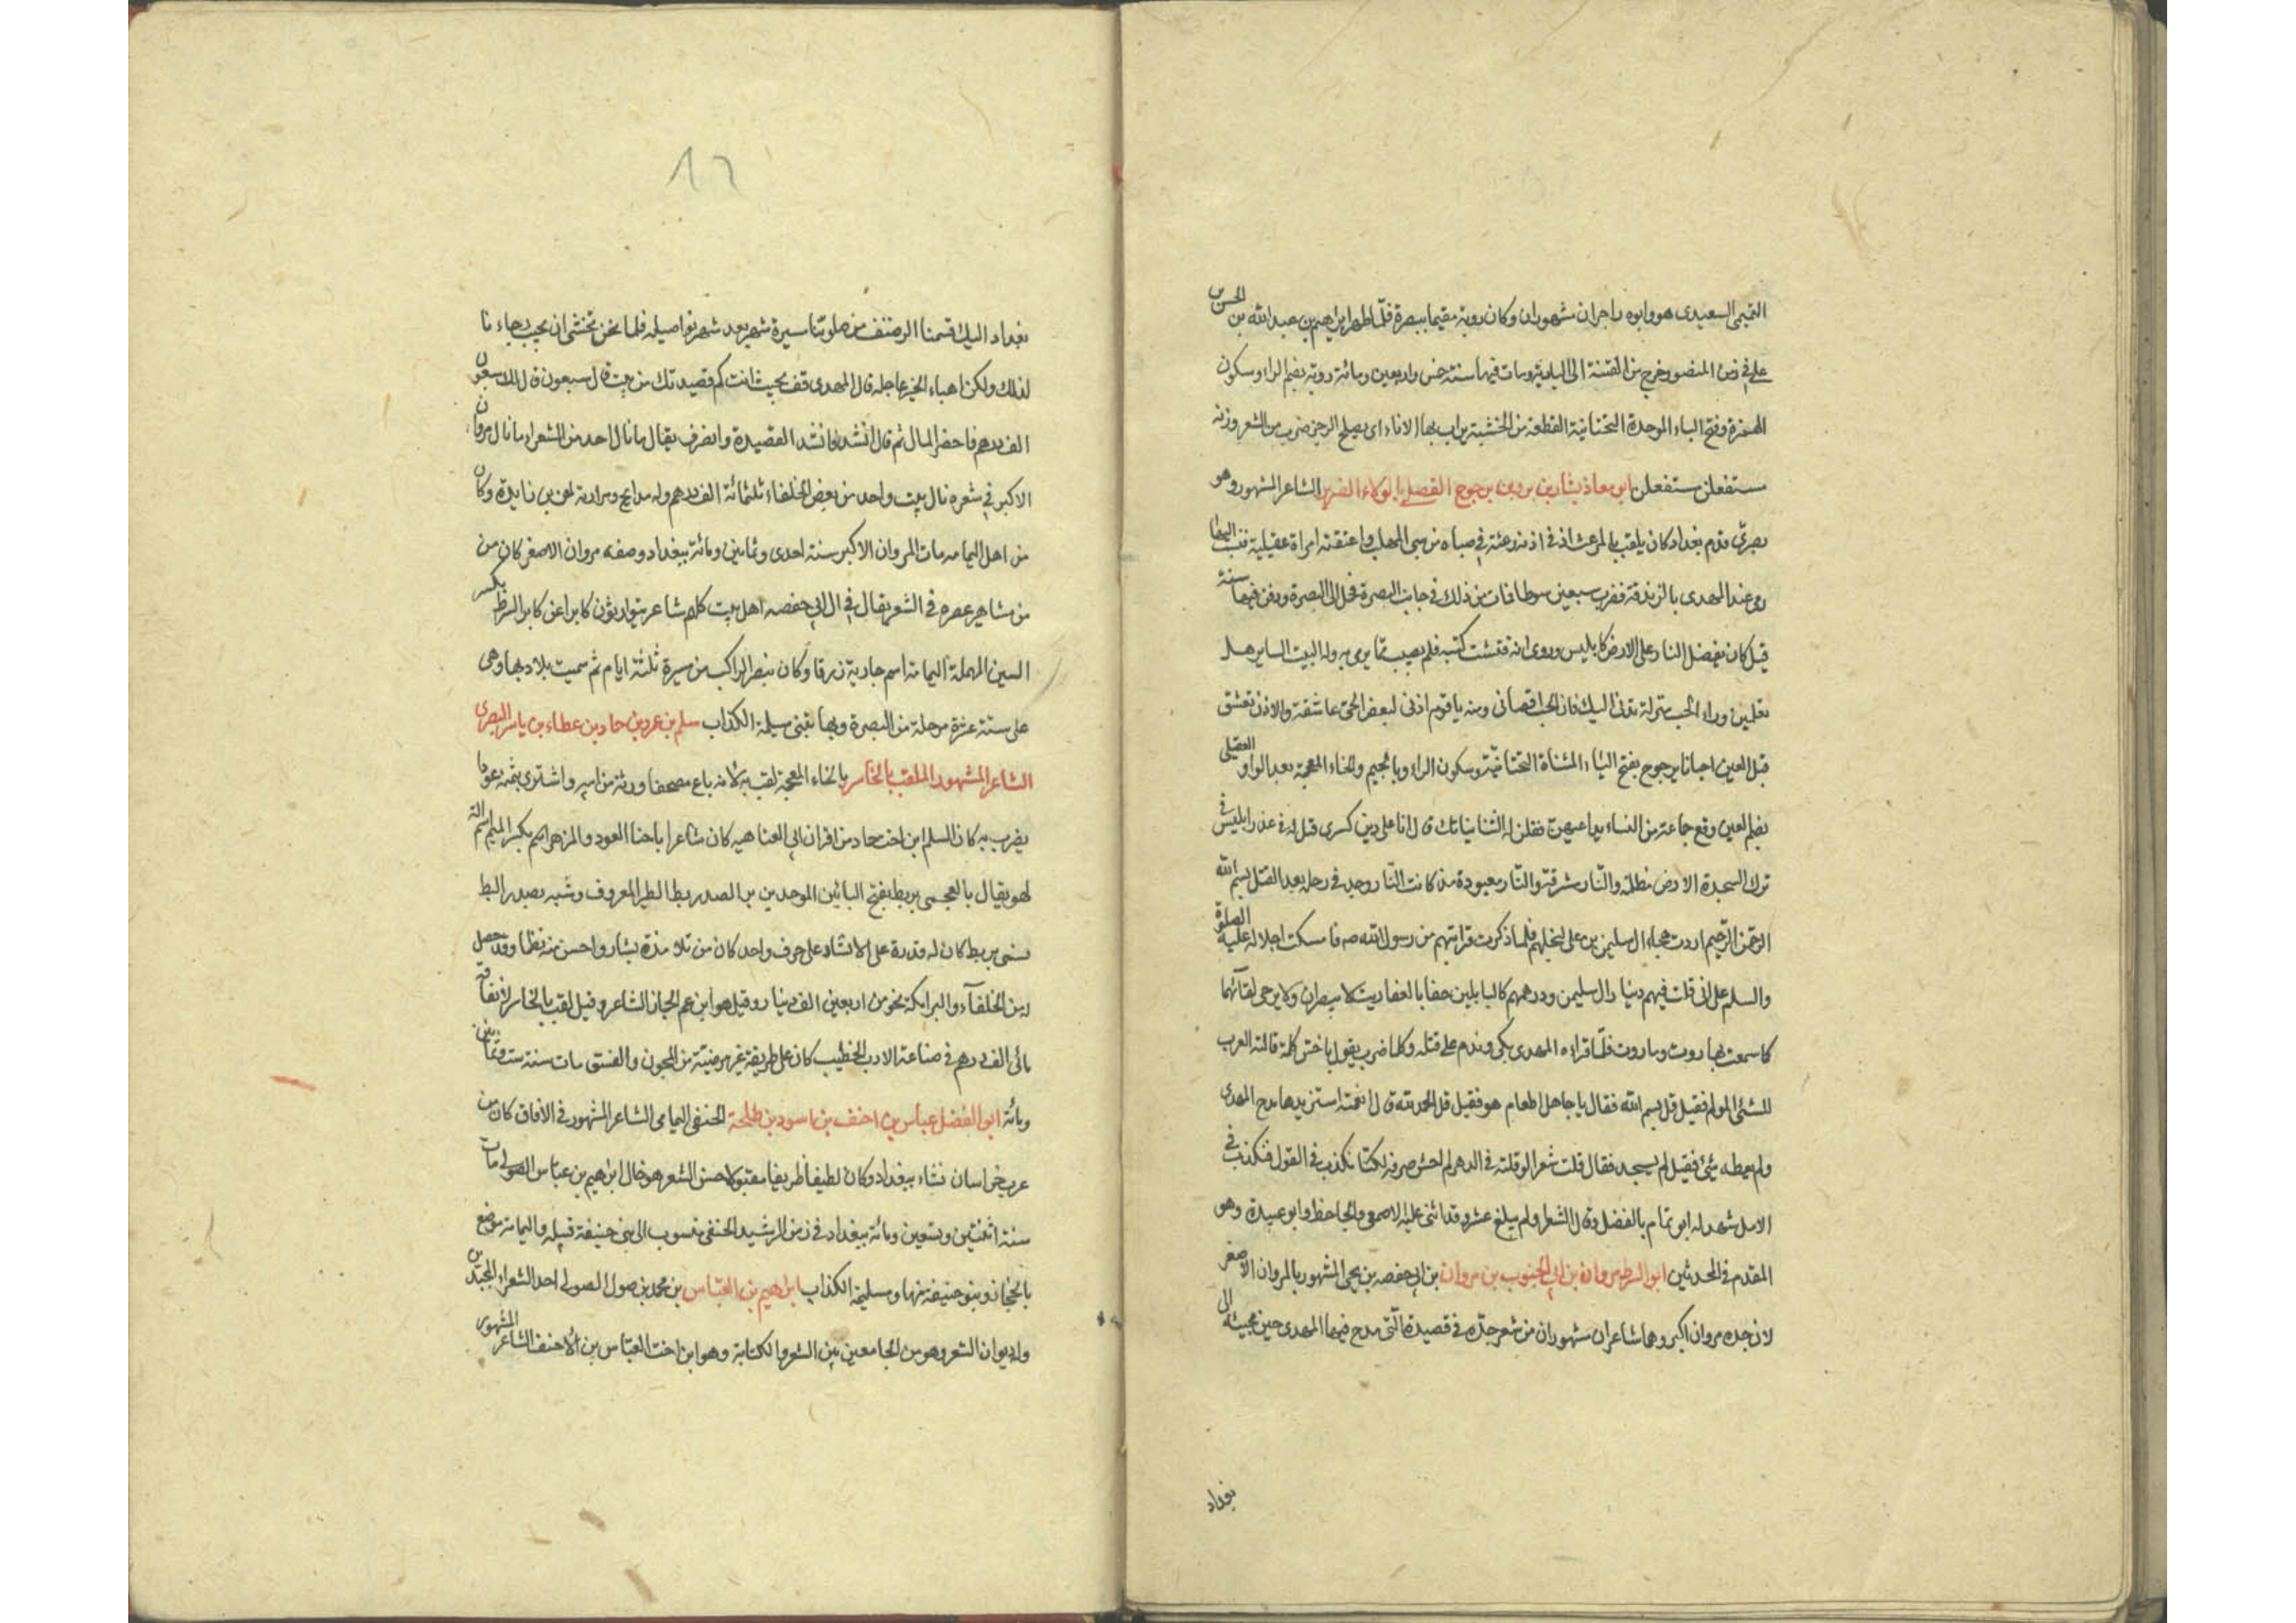 التميمى السعيدى هو وابوه راجزان مشهوران وكان روبة مقيما ببصرة فلما ظهر ابراهيم بن عبد الله بن الحسن بن
على فى زمن المنصور وخرج من الفتنة الى البادية ومات فيها سنة خمس واربعين ومائة روبة بضم الراء وسكون
الهمزة وفتح الباء الموحدة التحتانية القطعة من الخشبة يراب بها الاناء اى يصلح الرجز ضرب من الشعر وزنه
مستفعلن مستفعلن ابو معاذ بشار بن برد بن يرجوخ العقيلى بالولاء الضرير الشاعر المشهور وهو
بصرى قدم بغداد كان يلقب بالمرعث اذ فى اذنه رعثة فى صباه من سبى المهلب واعتقته امراة عقيلية فنسب اليها
رمى عند المهدى بالزندقة فضرب سبعين سوطا فمات من ذلك فى جانب البصرة فحمل الى البصرة ودفن فيها سنة
قيل كان يفضل النار على الارض كابليس وروى انه فتشت كتبه فلم يصب مما يرمى به وله البيت الساير هل
تعلمين وراء الحب منزلة تدنى اليك فان الحب اقصانى ومنه يا قوم اذنى لبعض الحى عاشقة والاذن تعشق
قبل العين احيانا يرجوخ بفتح الياء المثناة التحتانية وسكون الراء وبالجيم والخاء المعجمة بعد الواو العقيلى
بضم العين وقع جماعة من النساء
ترك السجدة الارض مظلمة والنار مشرقة والنار معبودة مذ كانت النار وجد فى رحله بعد القتل بسم الله
الرحمن الرحيم اردت هجاء ال سليمن بن على لبخلهم فلما ذكرت قرابتهم من رسول الله صه فامسكت اجلالا له عليه الصلوة
والسلم على انى قلت فيهم دينار ال سليمن ودرهمهم كالبابلين حفا بالعفاريت لا يبصران ولا يرجى لقاؤهما
كما سمعت بهاروت وماروت فلما قراه المهدى بكى وندم على قتله وكلما ضرب يقول باختر كلمة قالته العرب
للشئ المولم فقيل قل بسم الله فقال يا جاهل اطعام هو فقيل قل الحمد لله قال انعمة استزيدها مدح المهدى
ولم يعطه شئ فقيل لم يستجد فقال قلت شعرا لو قلته فى الدهر لم اخش صرفه لكنا نكذب فى القول فنكذب فى
الامل شهد له ابو تمام بالفضل وقال الشعر ولم يبلغ عشر وقد اثنى عليه الاصمعى والجاحظ وابو عبيدة وهو
المقدم فى المحدثين ابو السمط مروان بن ابى الجنوب بن مروان بن ابى حفصه بن يحيى المشهور بالمروان الاصغر
لان جده مروان اكبر وهما شاعران مشهوران من شعر جده فى قصيدة التى مدح فيها المهدى حين مجيئه الى
بغداد
12
بغداد اليك قسمنا النصف من صلوتنا مسيرة شهر بعد شهر نواصله فلما نحن نخشى ان يخيب رجاءنا
لذلك ولكن اهناء الخير عاجله قال المهدى قف بحيث انت كم قصيدتك من بيت قال سبعون قال لك سبعون
الف درهم فاحضر المال ثم قال انشد فانشد القصيدة وانصرف يقال ما نال احد من الشعراء ما نال مروان
الاكبر فى شعره نال بيت واحد من بعض الخلفاء ثلثمائة الف درهم وله مدايح ومراثية لمعن بن زايدة وكان
من اهل اليمامه مات المروان الاكبر سنة احدى وثمانين ومائة ببغداد وصفه مروان الاصغر كان من
من مشاهير عصره فى الشعر يقال فى ال ابى حفصه اهل بيت كلهم شاعر يتوارثون كابرا عن كابر السمط بكسر
السين المهملة اليمامة اسم جارية زرقا وكان تبصر الراكب من مسيرة ثلثة ايام ثم سميت بلاد بها وهى
على ستة عشرة مرحلة من البصرة وبها تنبى مسيلمة الكذاب سلم بن عمرو بن حماد بن عطاء بن ياسر البصرى
الشاعر المشهور الملقب بالخاسر بالخاء المعجمة لقب به لانه باع مصحفا ورثه من ابيه واشترى بثمنه عودا
يضرب به كان السلم ابن اخت حماد من اقران ابى العتاهيه كان شاعرا ماجنا العود والمزهر اسم بكسر الميم اسم الة
لهو يقال بالعجمى بربط بفتح البائين الموحدين بر الصدر بط الطير المعروف وشبه بصدر البط
فسمى بربط كان له قدرة على الانشاد على حرف واحد كان من تلامذة بشار واحسن منه نظما وقد حصل
له من الخلفآء والبرامكة نحو من اربعين الف دينار وقيل هو ابن عم الجماز الشاعر وقيل لقب بالخاسر لانفاقه
مائى الف درهم فى صناعة الادب الخطيب كان على طريقة غير مرضية من المجون والفسق مات سنة ست وثمانين
ومائة ابو الفضل عباس بن احنف بن اسود بن طلحة الحنفى اليمامى الشاعر المشهور فى الافاق كان من
عرب خراسان نشاء ببغداد وكان لطيفا ظريفا مقبولا حسن الشعر هو خال ابراهيم بن عباس الصولى مات
سنة اثنتين وتسعين ومائة ببغداد فى زمن الرشيد الحنفى منسوب الى بنى حنيفة قبيله واليمامة موضع
بالحجاز وبنو حنيفة منها ومسليمة الكذاب ابراهيم بن العباس بن محمد بن صول الصولى احد الشعراء المجيدين
وله ديوان الشعر وهو من الجامعين بين الشعر والكتابة وهو ابن اخت العباس بن الاحنف الشاعر المشهور